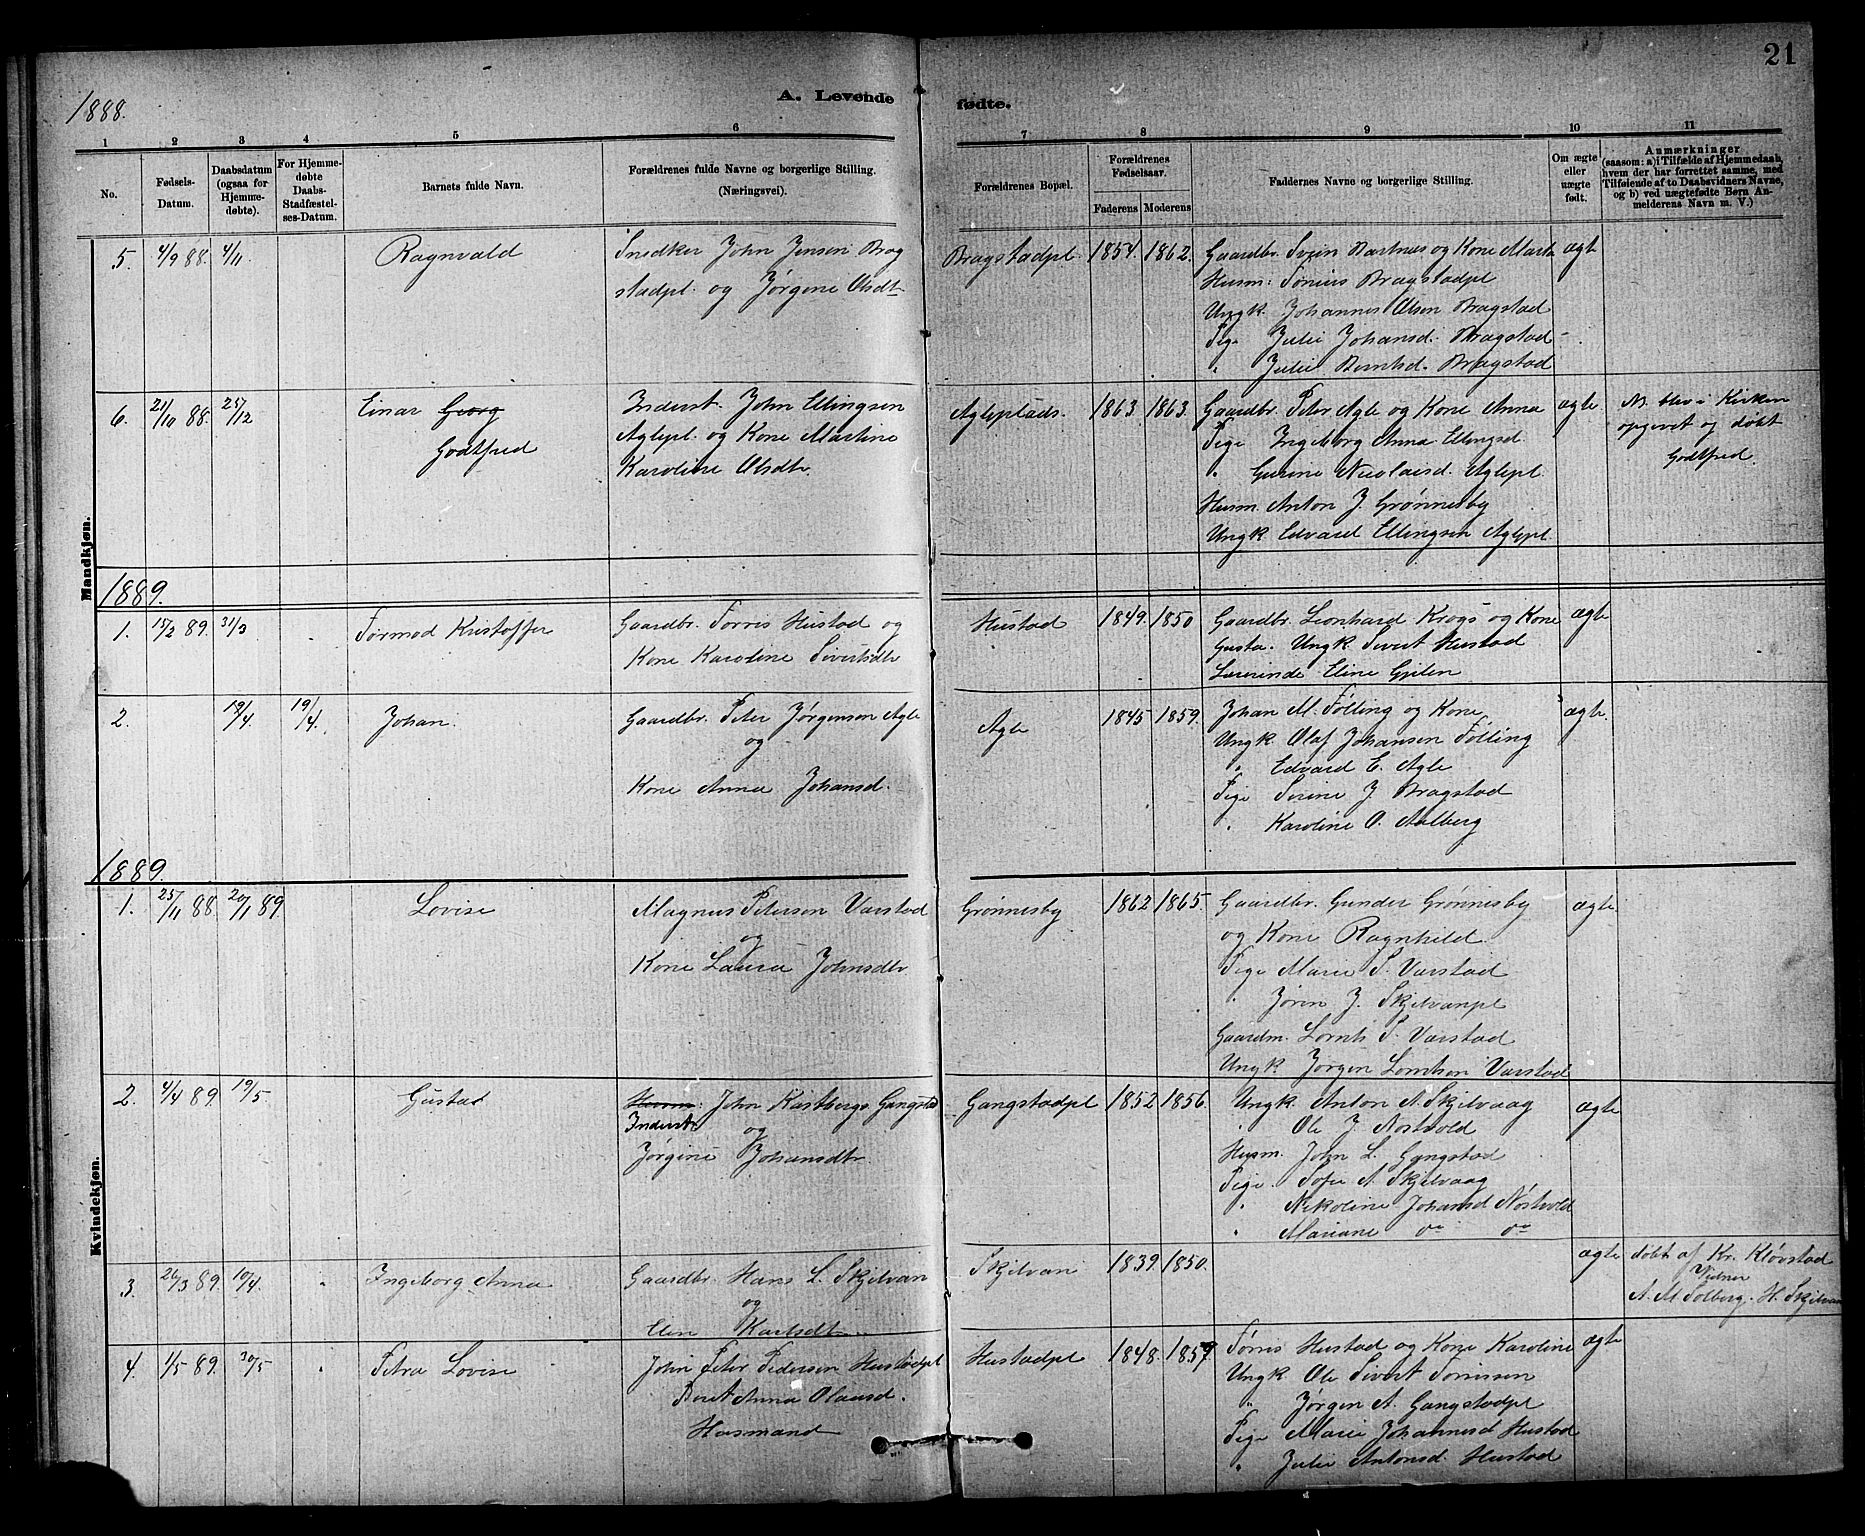 21
1888.
A. Levende fødte.
1 2 3 4 5 6 7 8 9 10 11
No.
Fødsels-Datum.
Daabsdatum (ogsaa for Hjemme-døbte).
For Hjemme-døbte Daabs-Stadfæstel-ses-Datum.
Barnets fulde Navn.
Forældrenes fulde Navne og borgerlige Stilling. (Næringsvei).
Forældrenes Bopæl.
Forældrenes Fødselsaar.
Faderens Moderens
Faddernes Navne og borgerlige Stilling.
Om ægte eller uægte født.
Anmærkninger
(saasom: a) i Tilfælde af Hjemmedaab, hvem der har forrettet samme, med Tilføiende af to Daabsvidners Navne, og b) ved uægtefødte Børn Anmelderens Navn m. V.)
Mandkjøn.
5. 4/9 88. 4/11. Ragnvald
Snedker John Jensen Brag
stadpl. og Jørgine Olsdt
Bragstadpl. 1854. 1862.
Gaardbr. Svein Bartnæs og Kone Marta
Husm: Tønius Bragstadpl
Ungk. Johannes Olsen Bragstad
Pige Julie Johansd. Bragstad
" Julie Berntsd. Bragstad
ægt
6. 21/10 88. 25/12 Einar Georg
Godtfred
Inderst. John Ellingsen
Aglepl. og Kone Martine
Karoline Olsdtr.
Agleplads. 1863 1863.
Gaardbr. Peter Agle og Kone Anna
Pige Ingeborg Anna Ellingsd.
" Gurine Nicolaisd. Aglepl.
Husm. Anton J. Grønnesby
Ungk. Edvard Ellingsen Aglepl.
ægte
N. blev i Kirken
opgivet og døbt
Godtfred.
1889.
1. 15/2 89. 31/3 . Tormod Kristoffer
Gaardbr. Torris Hustad og
Kone Karoline Sivertsdtr
Hustad 1849. 1850
Gaardbr. Leonhard Krogs og Kone
Gusta. Ungk Sivert Hustad
Lærerinde Eline Gjilen
ægte
2. 19/4 19/4. Johan.
Gaardbr. Peter Jørgensen Agle
og
Kone Anna Johansd.
Agle 1845 1859.
Johan M. Følling og Kone
Ungk Olaf Johansen Følling
" Edvard E. Agle
Pige Serine J Bragstad
" Karoline O. Aalberg
ægte.
1889.
Kvindekjøn.
1. 25/11 88. 20/1 89. Lovise
Magnus Petersen Varstad
og
Kone Laura Johnsdtr
Grønnesby 1862 1865.
Gaardbr. Gunder Grønnesby
og Kone Ragnhild.
Pige Marie P. Varstad
" Jørin J. Skjelvanpl
Gaardm. Lornts P. Varstad
Ungk. Jørgen Lorntsen Varstad
ægte
2. 4/4 89. 19/5 Gustad
Husm. John Kastbergs. Gangstad
Inderst
og
Jørgine Johansdtr.
Gangstadpl 1852 1856.
Ungk. Anton A. Skjelvaag
" Ole J. Nostvold
Husm. John L. Gangstad
Pige. Sofie A. Skjelvaag
" Nikoline Johansd Nostvold
" Mariane do do
ægte
3. 26/3 89. 10/4. " Ingeborg Anna
Gaardbr. Hans L. Skjelvan
og
Elin Karlsdtr
Skjelvan 1839. 1850.
ægte
døbt af Kr. Kløvstad
Vidner
A. M Solberg. H. Skjelvan
4. 1/5 89. 30/5 " Petra Lovise
John Peter Pedersen Hustadpl
Beret Anna Olausd.
Husmand
Hustadpl 1848. 1857.
Torris Hustad og Kone Karoline
Ungk Ole Sivert Torrissen
" Jørgen A. Gangstadpl
Pige Marie Johannesd Hustad
" Julie Antonsd. Hustad
ægte